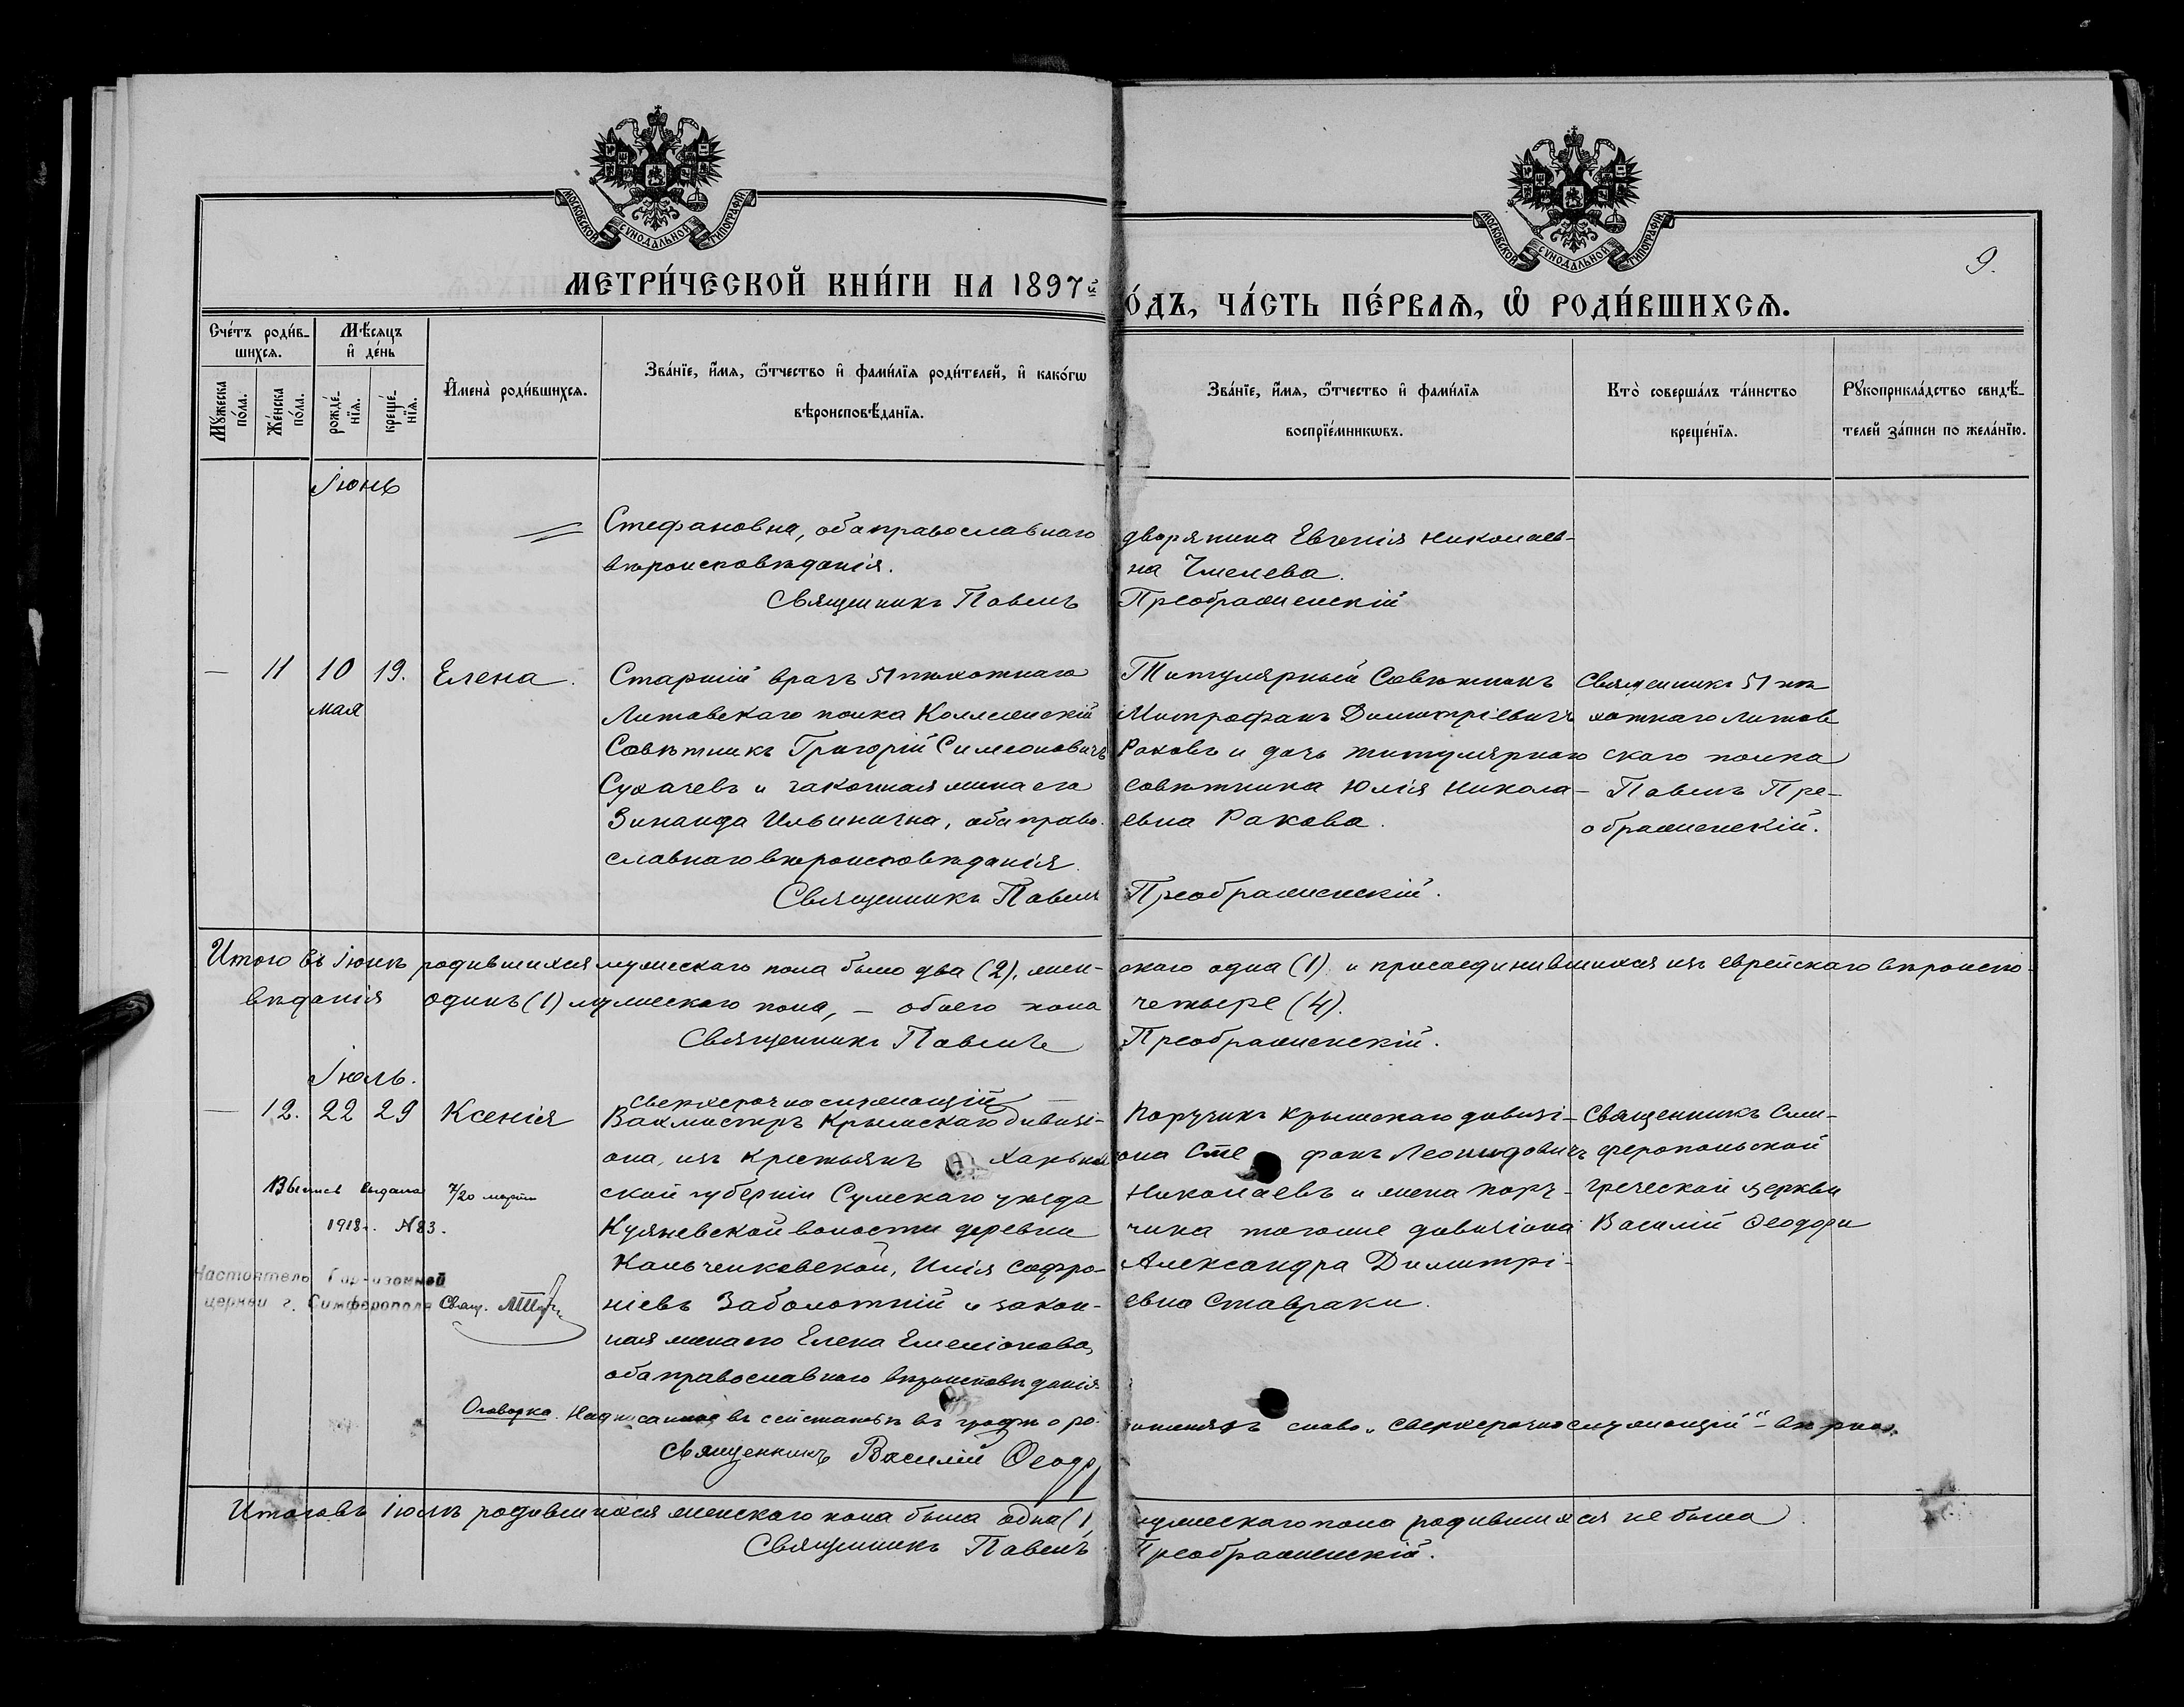 МОСКОВСКОЙ СУНОДАЛЬНОЙ ТИПОГРАФІИ
МОСКОВСКОЙ СУНОДАЛЬНОЙ ТИПОГРАФІИ
9.
МЕТРИ́ЧЕСКОЙ КНИ́ГИ НА 1897й
О́ДЪ, ЧА́СТЬ ПЕ́РВАѦ, Ѡ РОДИ́ВШИХСѦ.
Сче́тъ роди́в-
шихсѧ.
Мѣ́сѧцъ
и҆ де́нь
Мꙋ́жеска по́ла.
Же́нска по́ла.
рожде́-нїѧ.
креще́-нїѧ.
И҆мена̀ роди́вшихсѧ.
Зва́нїе, и҆́мѧ, ѻ҆́тчество и҆ фами́лїѧ роди́телей, и҆ како́гѡ
вѣроисповѣ́данїѧ.
Зва́нїе, и҆́мѧ, ѻ҆́тчество и҆ фами́лїѧ
воспрїе́мникѡвъ.
Кто̀ соверша́лъ та́инство
креще́нїѧ.
Рꙋкоприкла́дство свидѣ́-
телей за́писи по жела́нїю.
Іюнь
Стефановна, оба православнаго
вѣроисповѣданія.
Священникъ Павелъ
дворянина Евгенія Николаев-
на
Преображенскій
— 11 10 19. Елена.
мая
Старшій врачъ 51 пѣхотнаго
Литовскаго полка Коллежскій
Совѣтникъ Григорій Симеоновичъ
Сухачевъ и законная жена его
Зинаида Ильинична, оба право-
славнаго вѣроисповѣданія.
Священникъ Павелъ
Титулярный Совѣтникъ
Митрофанъ Димитріевичъ
Раковъ и дочь титулярнаго
совѣтника Юлія Никола-
евна Ракова.
Преображенскій.
Священникъ 51 пѣ
хотнаго Литов
скаго полка
Павелъ Пре-
ображенскій.
Итого въ Іюнѣ родившихся мужескаго пола было два (2), жен-
скаго одна (1) и присоединившихся изъ еврейскаго вѣроиспо-
вѣданія одинъ (1) мужескаго пола, — обоего пола
четыре (4).
Священникъ Павелъ
Преображенскій.
Іюль.
— 12. 22 29 Ксенія
сверхсрочнослужащій
Вахмистръ Крымскаго дивизі-
она, изъ крестьянъ Харьков
ской губерніи Сумскаго уѣзда
волости деревни
Кальченковской, Илія Софро-
ніевъ Заболотній и закон-
ная жена его Елена Емеліанова,
оба православнаго вѣроисповѣданія
Поручикъ Крымскаго дивизі-
она Сте фанъ Леонидовичъ
Николаевъ и жена пору-
чика тогоже дивизіона
Александра Димитрі-
евна Ставраки.
Священникъ Сим-
феропольской
греческой церкви
Василій Ѳеодори
Выпись выдана 7/20 марта
1918 г. № 83.
Настоятель Гарнизонной
церкви г. Симферополя Свящ.
Оговорка. Надписанное въ сей статьѣ въ графѣ о ро-
дителяхъ слово „сверхсрочнослужащій" — вѣрно.
Священникъ Василій Ѳеодо
Итого въ Іюлѣ родившихся женскаго пола была одна (1
мужескаго пола родившихся не было.
Священникъ Павелъ
Преображенскій.